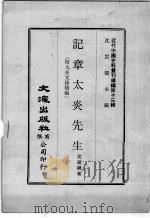 近代中國史料叢刊續編第十三輯
沈雲龍主編
記章太炎先生
沈延國著
(附太炎文錄續編)
文海出版社有限公司印行